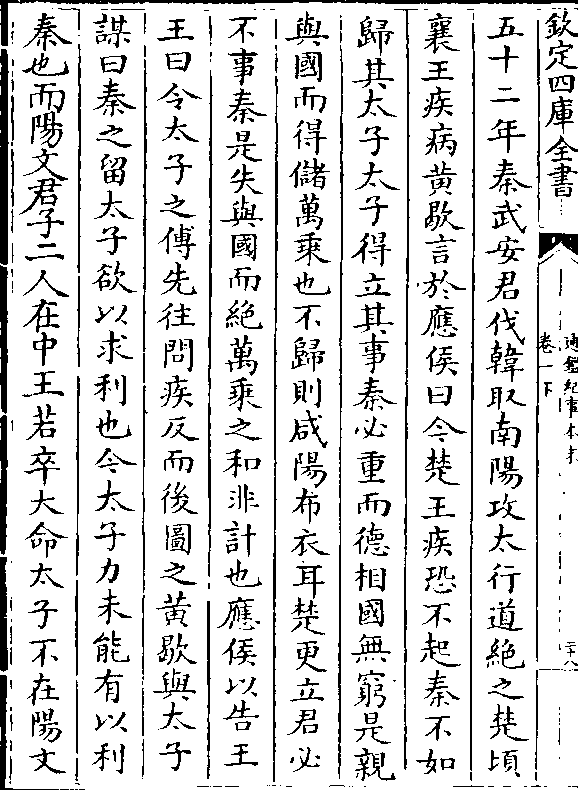 欽定四庫全書
通鑑紀事本末
卷一下
五十二年秦武安君伐韓取南陽攻太行道絶之楚頃
襄王疾病黄歇言於應侯曰今楚王疾恐不起秦不如
歸其太子太子得立其事秦必重而德相國無窮是親
與國而得儲萬乘也不歸則咸陽布衣耳楚更立君必
不事秦是失與國而絶萬乘之和非計也應侯以告王
王曰令太子之傅先往問疾反而後圖之黄歇與太子
謀曰秦之留太子欲以求利也今太子力未能有以利
秦也而陽文君子二人在中王若卒大命太子不在陽文